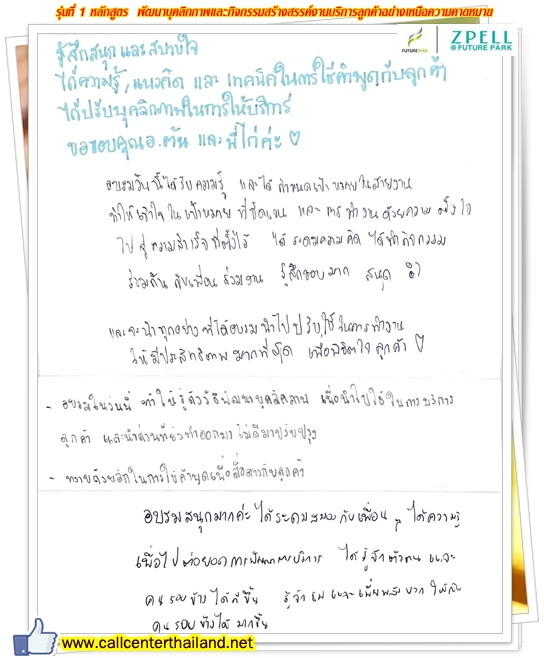 รุ่นที่ 1 หลักสูตร พัฒนาบุคลิกภาพและกิจกรรมสร้างสรรค์งานบริการลูกค้าอย่างเหนือความคาดหมาย
FUTUREPARK
ZPELL
@ FUTURE PARK
รู้สึกสนุก และ สบายใจ
ได้ความรู้, แนวคิด และ เทคนิคในการใช้คำพูดกับลูกค้า
ได้ปรับบุคลิกภาพในการให้บริการ
ขอขอบคุณ อ.ต้น และ พี่ไก่ค่ะ ♡
อบรมวันนี้ได้รับความรู้ และได้กำหนดเป้าหมายในสายงาน
ทำให้เข้าใจในเป้าหมายที่ชัดเจน และการทำงานด้วยความตั้งใจ
ไปสู่ความสำเร็จที่ตั้งไว้ ได้ระดมความคิด ได้ทำกิจกรรม
ร่วมกันกับเพื่อนร่วมงาน รู้สึกชอบมาก สนุก
และจะนำทุกอย่างที่ได้อบรมนำไปปรับใช้ในการทำงาน
ให้มีประสิทธิภาพมากที่สุด เพื่อพิชิตใจลูกค้า ♡
- อบรมในวันนี้ ทำให้รู้ถึงวิธีพัฒนาบุคลิคภาพ เพื่อนำไปใช้ในการบริการ
ลูกค้า และนำส่วนที่ยังทำออกมาไม่ดีมาปรับปรุง
- ทราบถึงหลักในการใช้คำพูดเพื่อสื่อสารกับลูกค้า
อบรมสนุกมากค่ะ ได้ระดมสมองกับเพื่อน ๆ ได้ความรู้
เพื่อไปต่อยอดการพัฒนาการบริการ ได้รู้จักตัวตน และ
คนรอบข้างได้ดีขึ้น รู้จัก และเพิ่มพลังบวก ให้กับ
คนรอบข้างได้ มากขึ้น
www.callcenterthailand.net